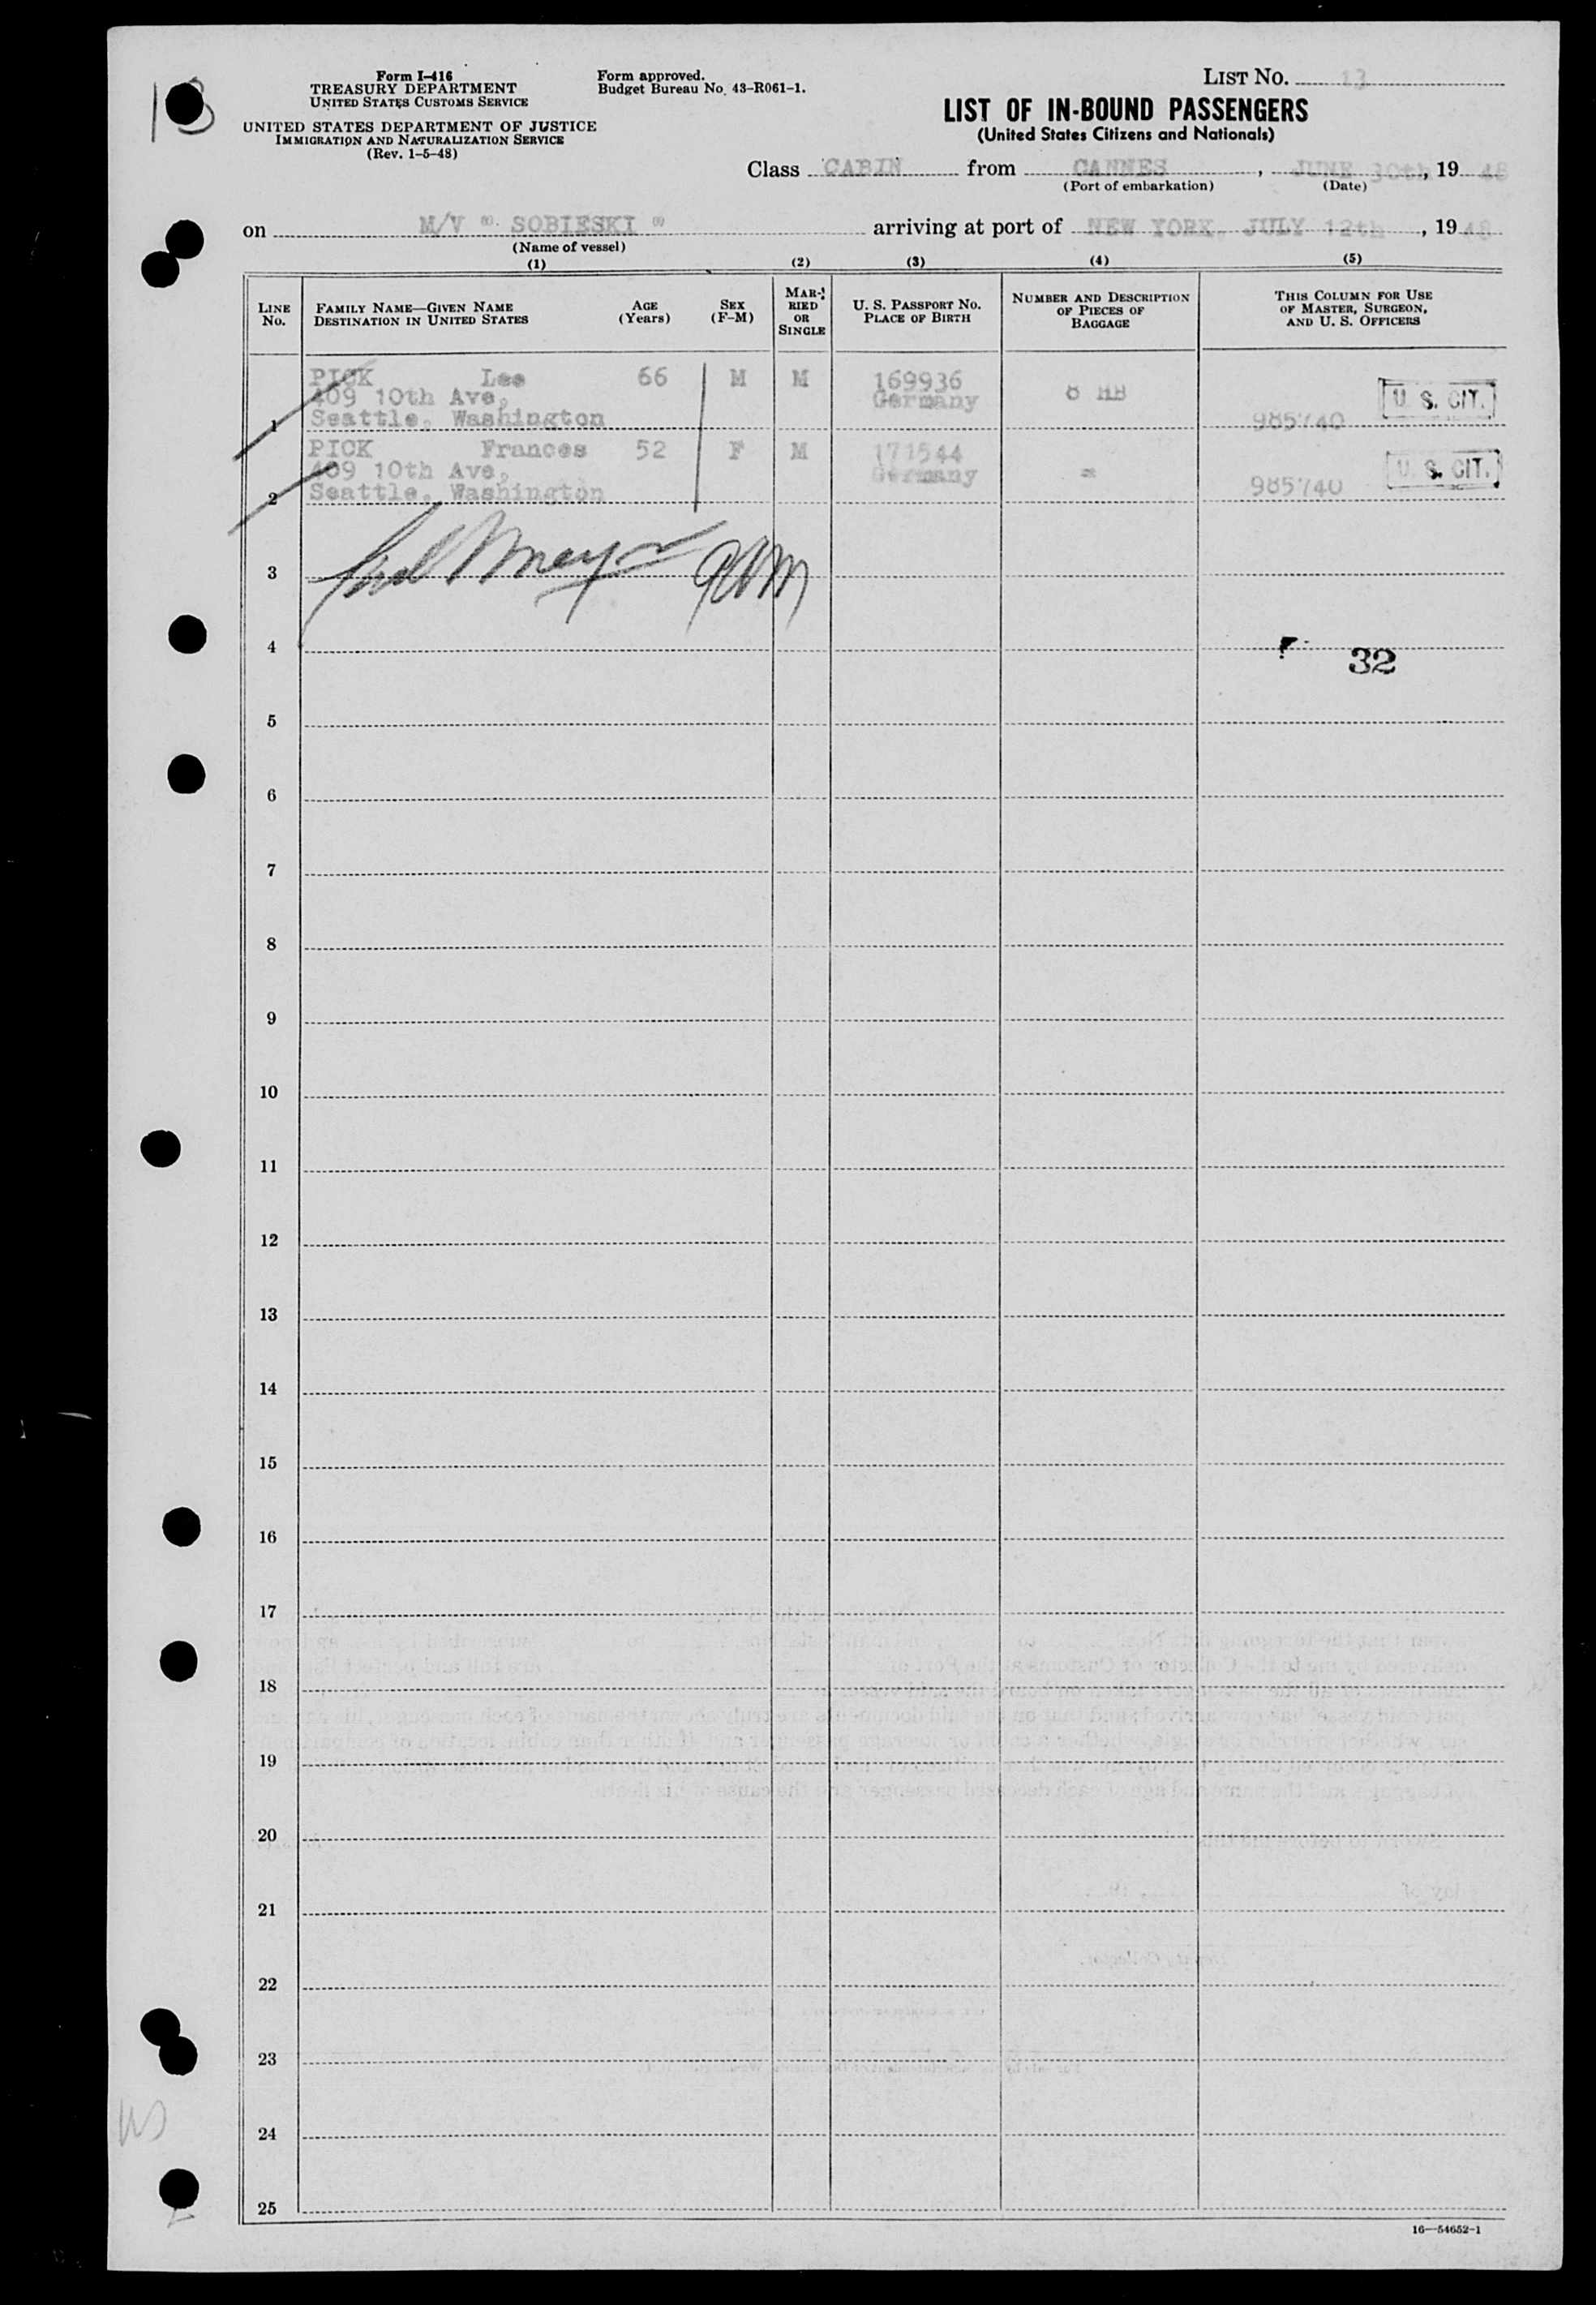 13
Form I-416
TREASURY DEPARTMENT
UNITED STATES CUSTOMS SERVICE
UNITED STATES DEPARTMENT OF JUSTICE
IMMIGRATION AND NATURALIZATION SERVICE
(Rev. 1-5-48)
Form approved.
Budget Bureau No. 43-R061-1.
LIST NO. 13
LIST OF IN-BOUND PASSENGERS
(United States Citizens and Nationals)
Class CABIN from CANNES, JUNE 30th, 19 48
(Port of embarkation) (Date)
on M/V " SOBIESKI " arriving at port of NEW YORK, JULY 12th, 19 48
(Name of vessel)
(1) (2) (3) (4) (5)
LINE NO.
FAMILY NAME—GIVEN NAME
DESTINATION IN UNITED STATES
AGE
(Years)
SEX
(F-M)
MARRIED
OR
SINGLE
U. S. PASSPORT NO.
PLACE OF BIRTH
NUMBER AND DESCRIPTION
OF PIECES OF
BAGGAGE
THIS COLUMN FOR USE
OF MASTER, SURGEON,
AND U. S. OFFICERS
PICK Leo 66 M M 169936 8 HB U. S. CIT.
409 10th Ave, Germany
1 Seattle, Washington 985740
PICK Frances 52 F M 171544 U. S. CIT.
409 10th Ave, Germany =
2 Seattle, Washington 985740
3
4
32
5
6
7
8
9
10
11
12
13
14
15
16
17
18
19
20
21
22
23
24
25
16—54652-1